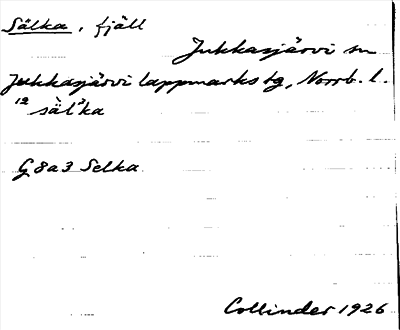 Sälka, fjäll
Jukkasjärvi sn
Jukkasjärvi lappmarks tg, Norrb. l.
12 sàl'ka
G 8a3 Selka
Collinder 1926